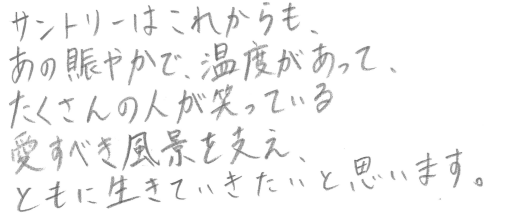 サントリーはこれからも、
あの賑やかで、温度があって、
たくさんの人が笑っている
愛すべき風景を支え、
ともに生きていきたいと思います。